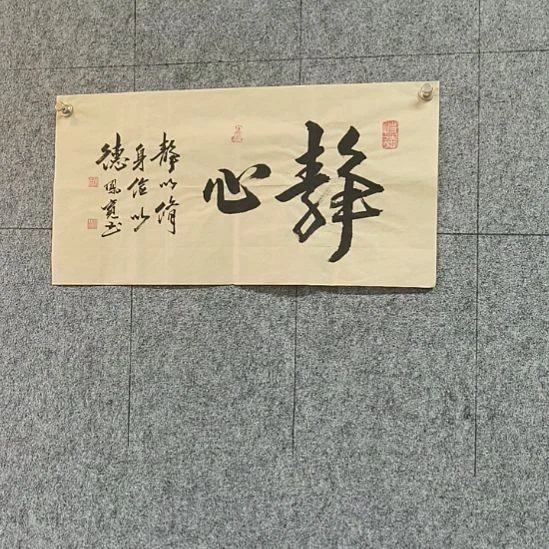 静心
静以脩
身俭以
德 凤宽书